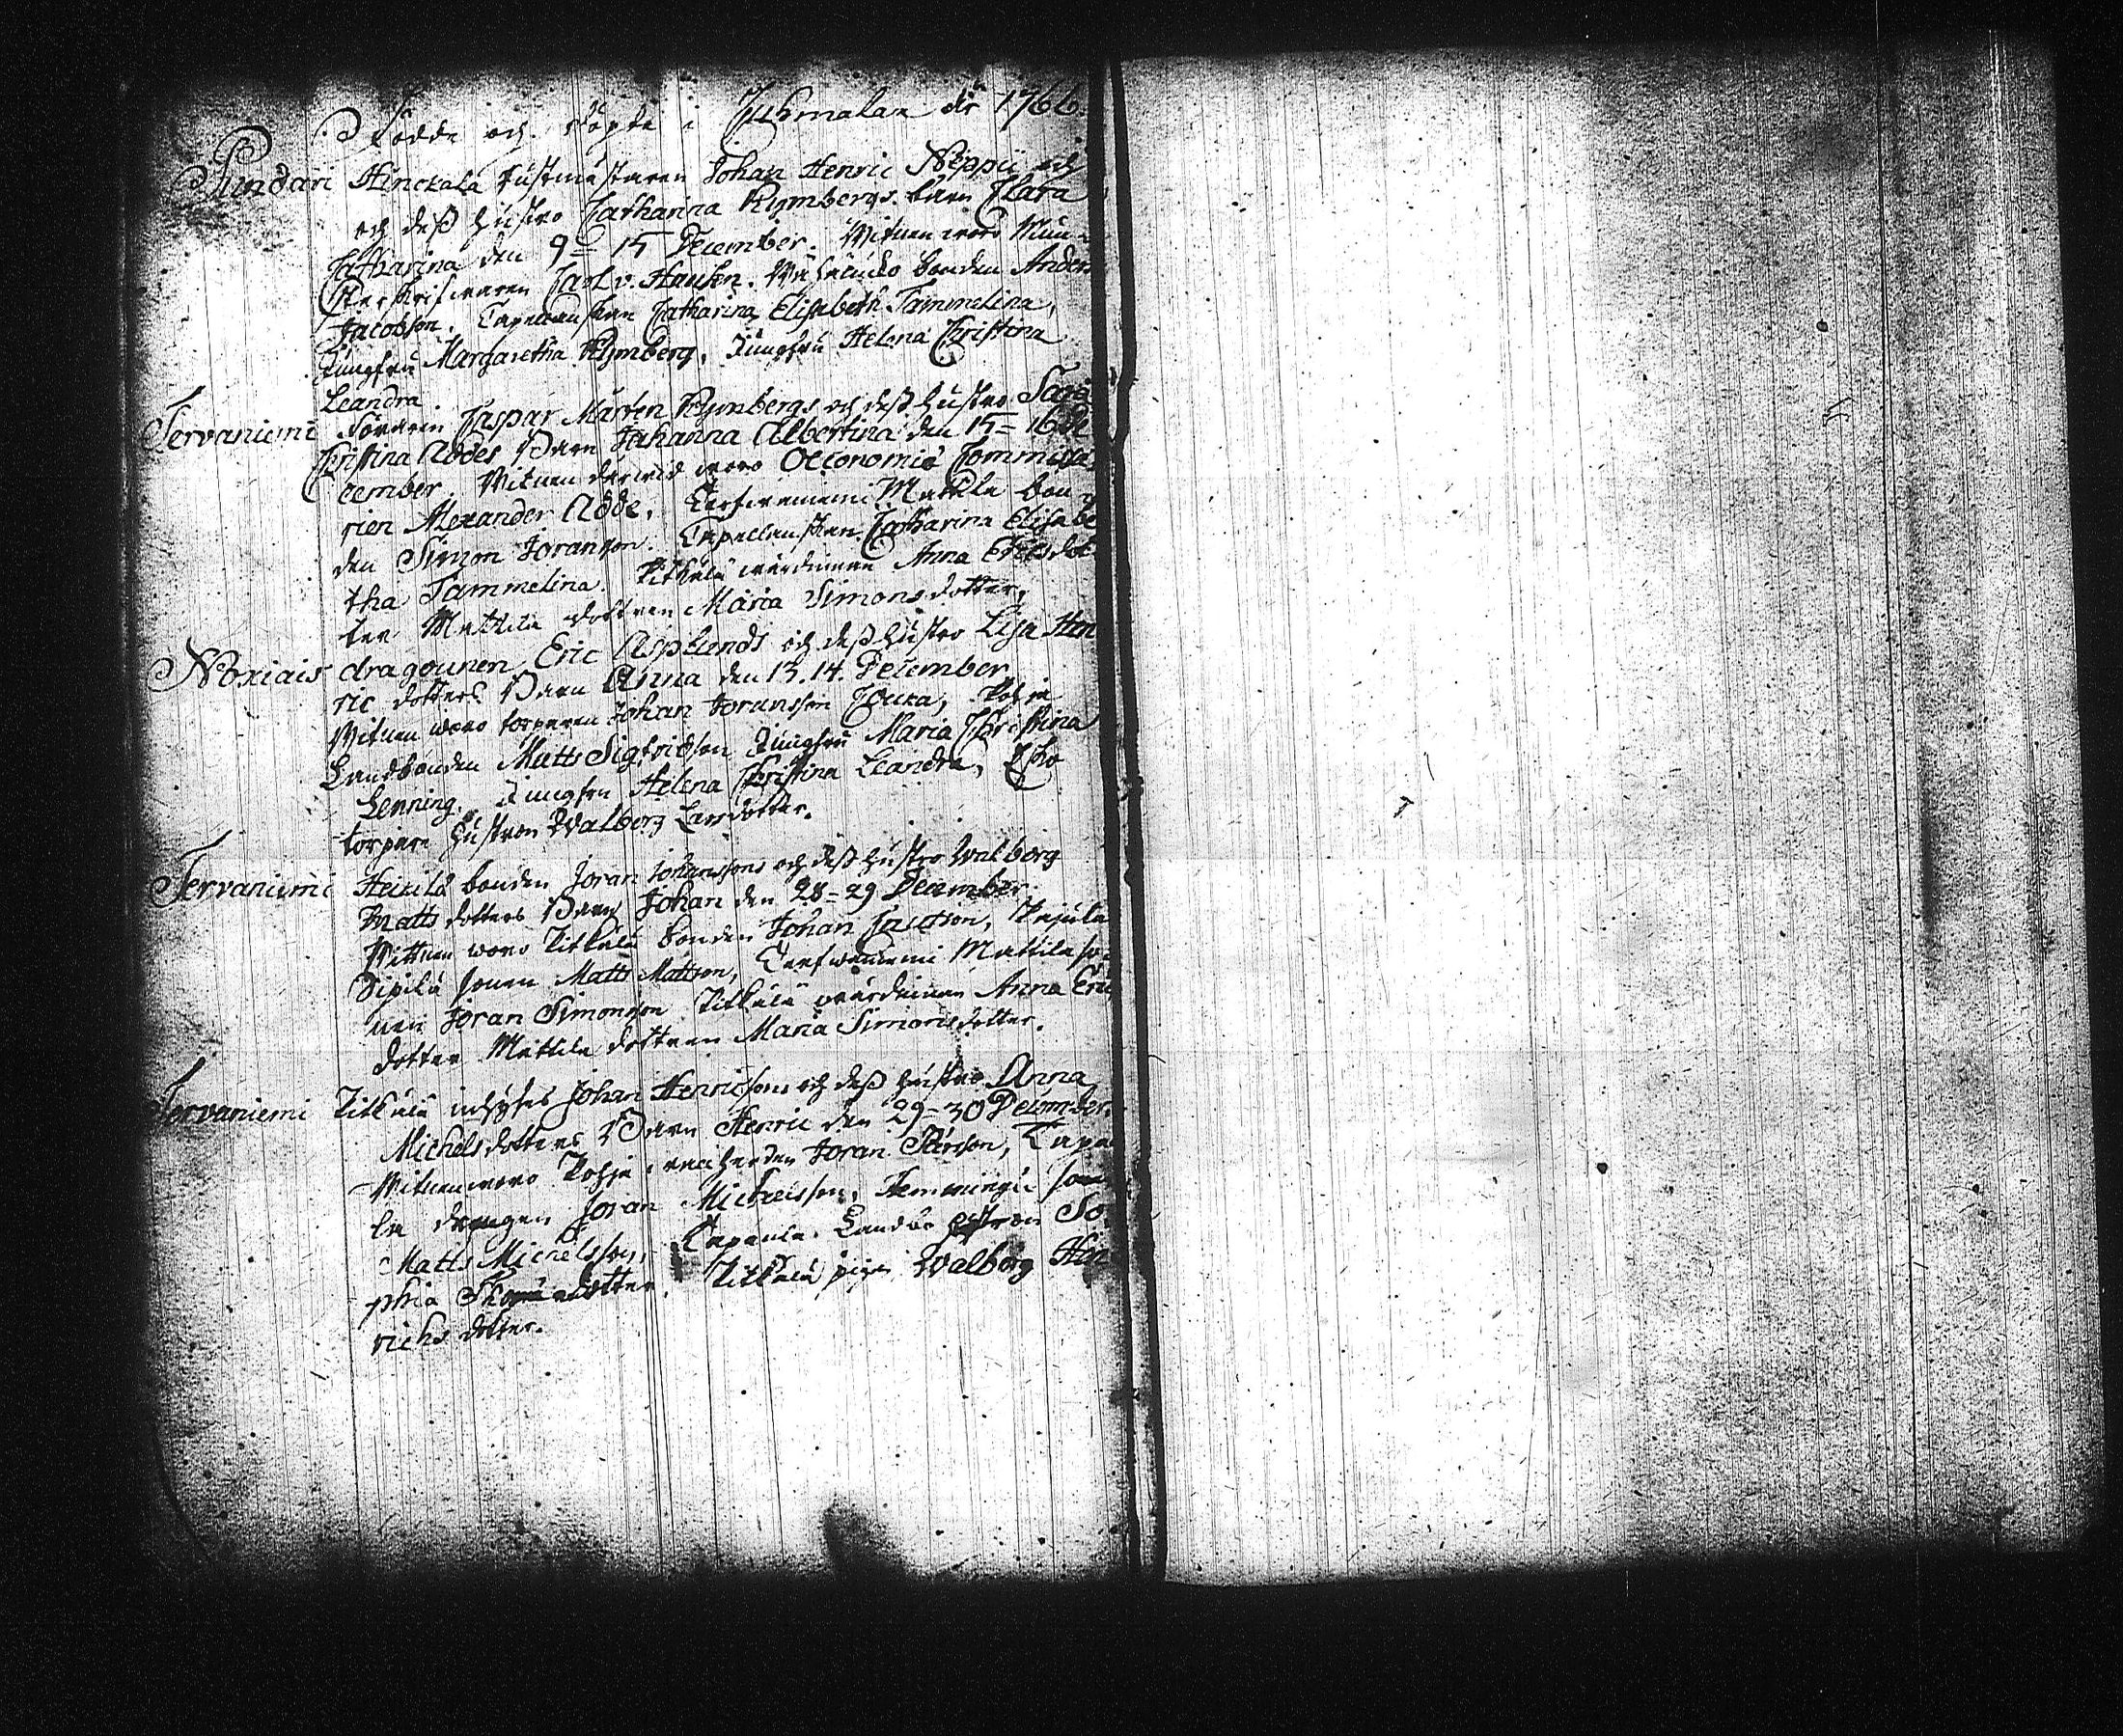 Födde och döpte i Juhmalax år 1766.
Pundari Hinckala Rustmästaren Johan Henric Neppii och
och dess hustro Catharina Rymbergs barn Clara
Catharina den 9 = 15 December. Witnen woro Mun-
sterskrifwaren Carl v. Hausen. bonden Anders
Jacobson. Capellanskan Catharina Elisabeth Tammelina,
Jungfru Margaretha Rymberg, Jungfru Helena Christina
Leandra
Tervaniemi Caspar Mårten Rymbergs och dess hustro Sara
Christina Ådes Barn Johanna Albertina den 15 = 16 De
cember. Witnen derwid woro Oeconomiæ Commissa
rien Alexander Åde. Terfwaniemi Mattila bon
den Simon Joranson. Capellanskan Catharina Elisabe
tha Tammelina. Pitkälä wärdinnan Anna Ericsdot
ter Mattila dottren Maria Simonsdotter,
Noxiais dragounen Eric Asplunds och dess hustro Lisa Hen
ric dotters Barn Anna den 13. 14. December
Witnen woro torparen Johan Joransson Pohja
Landbonden Matts Sigfridsson Jungfru Maria Christina
Lenning. Jungfru Helena Christina Leandra,
torpare hustron Walborg Larsdotter.
Tervaniemi Heikilä bonden Joran Johanssons och dess hustro Walborg
Matts dotters Barn Johan den 28 = 29 December.
Wittnen woro Pitkälä bonden Johan
Sipilä sonen Matts Mattson, Terfwaniemi Mattila so-
nen Joran Simonson Pitkälä wärdinnan Anna Eric
dotter Mattila dottren Maria Simonsdotter.
Tervaniemi Pitkälä inhyses Johan Henricsons och dess hustro Anna
Michelsdotters Barn Henric den 29 = 30 December.
Witnen woro Pohja Joran
la drengen Joran Michelsson, Hemmingis son
Matts Michelsson, So
phia dotter. Pitkälä pigan Walborg Hen
richs dotter.